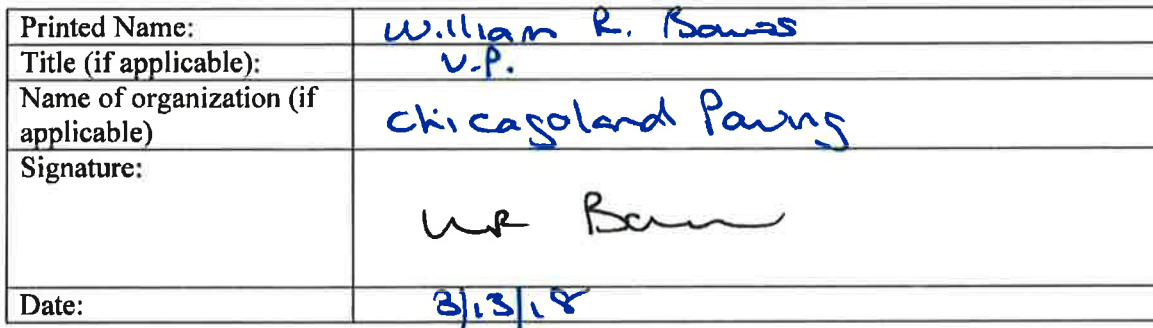 Printed Name: William R. Bowes
Title (if applicable): V.P.
Name of organization (if
applicable) Chicagoland Paving
Signature:
WR
Date: 3/13/18